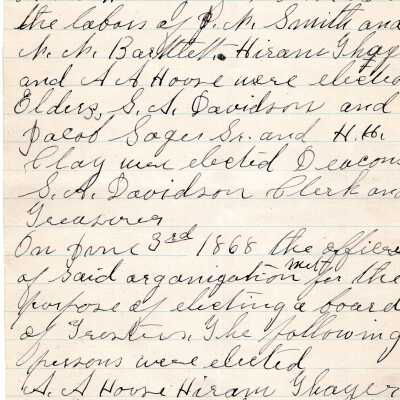 the labors of P. N. Smith and
N. N. Bartlett. Hiram Thayer
and A A House were elected
Elders, G. A. Davidson and
Jacob Sager Sr. and H. H.
Clay were elected Deacons
G. A. Davidson Clerk and
Treasurer
On June 3rd 1868 the officers
of said organization met for the
purpose of electing a board
of Trustees. The following
persons were elected
A. A House Hiram Thayer